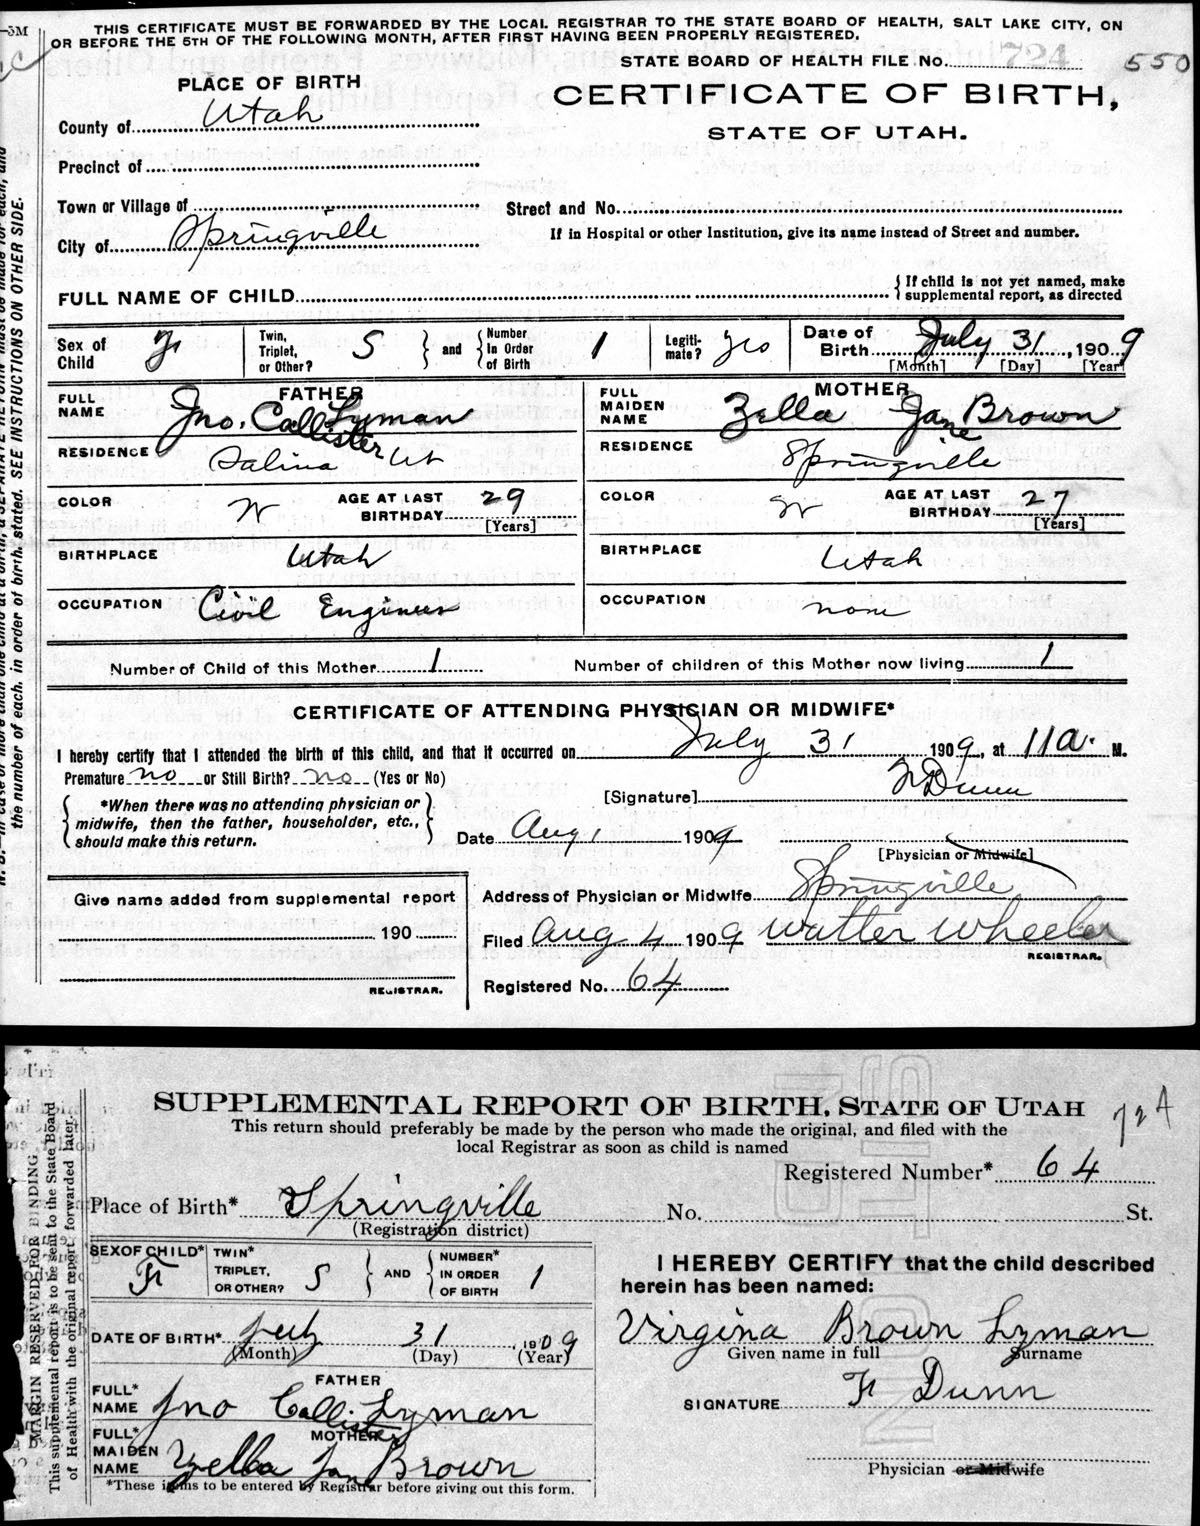 THIS CERTIFICATE MUST BE FORWARDED BY THE LOCAL REGISTRAR TO THE STATE BOARD OF HEALTH, SALT LAKE CITY, ON
OR BEFORE THE 5TH OF THE FOLLOWING MONTH, AFTER FIRST HAVING BEEN PROPERLY REGISTERED.
STATE BOARD OF HEALTH FILE No. 724 550
PLACE OF BIRTH
CERTIFICATE OF BIRTH,
STATE OF UTAH.
County of Utah
Precinct of
Town or Village of
Street and No.
City of Springville
If in Hospital or other Institution, give its name instead of Street and number.
FULL NAME OF CHILD
If child is not yet named, make
supplemental report, as directed
Sex of Child F
Twin, Triplet, or Other? S and Number In Order of Birth 1
Legitimate? yes
Date of Birth July 31, 1909
[Month] [Day] [Year]
FATHER
FULL NAME Jno. Callister Lyman
RESIDENCE Salina Ut
COLOR W AGE AT LAST BIRTHDAY 29 [Years]
BIRTHPLACE Utah
OCCUPATION Civil Engineer
MOTHER
FULL MAIDEN NAME Zella Jane Brown
RESIDENCE Springville
COLOR W AGE AT LAST BIRTHDAY 27 [Years]
BIRTHPLACE Utah
OCCUPATION none
Number of Child of this Mother 1 Number of children of this Mother now living 1
CERTIFICATE OF ATTENDING PHYSICIAN OR MIDWIFE*
I hereby certify that I attended the birth of this child, and that it occurred on July 31 1909, at 11 a. M.
Premature no or Still Birth? no (Yes or No)
[Signature] F Dunn
*When there was no attending physician or
midwife, then the father, householder, etc.,
should make this return.
Date Aug 1 1909
[Physician or Midwife]
Address of Physician or Midwife Springville
Give name added from supplemental report
190
REGISTRAR.
Filed Aug 4 1909 Walter Wheeler
REGISTRAR.
Registered No. 64
the number of each, in order of birth, stated. SEE INSTRUCTIONS ON OTHER SIDE.
SUPPLEMENTAL REPORT OF BIRTH, STATE OF UTAH 724
This return should preferably be made by the person who made the original, and filed with the
local Registrar as soon as child is named
Registered Number* 64
Place of Birth* Springville No. St.
(Registration district)
SEX OF CHILD* F
TWIN* TRIPLET, OR OTHER? S AND NUMBER* IN ORDER OF BIRTH 1
DATE OF BIRTH* July 31, 1909
(Month) (Day) (Year)
FATHER
FULL* NAME Jno Callister Lyman
MOTHER
FULL* MAIDEN NAME Zella Jane Brown
*These items to be entered by Registrar before giving out this form.
I HEREBY CERTIFY that the child described
herein has been named:
Virgina Brown Lyman
Given name in full Surname
SIGNATURE F Dunn
Physician or Midwife
MARGIN RESERVED FOR BINDING
This supplemental report is to be sent to the State Board
of Health with the original report forwarded later.